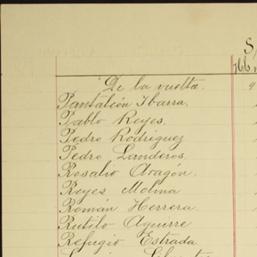 S
De la vuelta.
Pantaleón Ibarra.
Pablo Reyes.
Pedro Rodriguez
Pedro Landeros.
Rosalio Aragón.
Reyes Molina
Román Herrera.
Rutilo Aguirre
Refugio Estrada